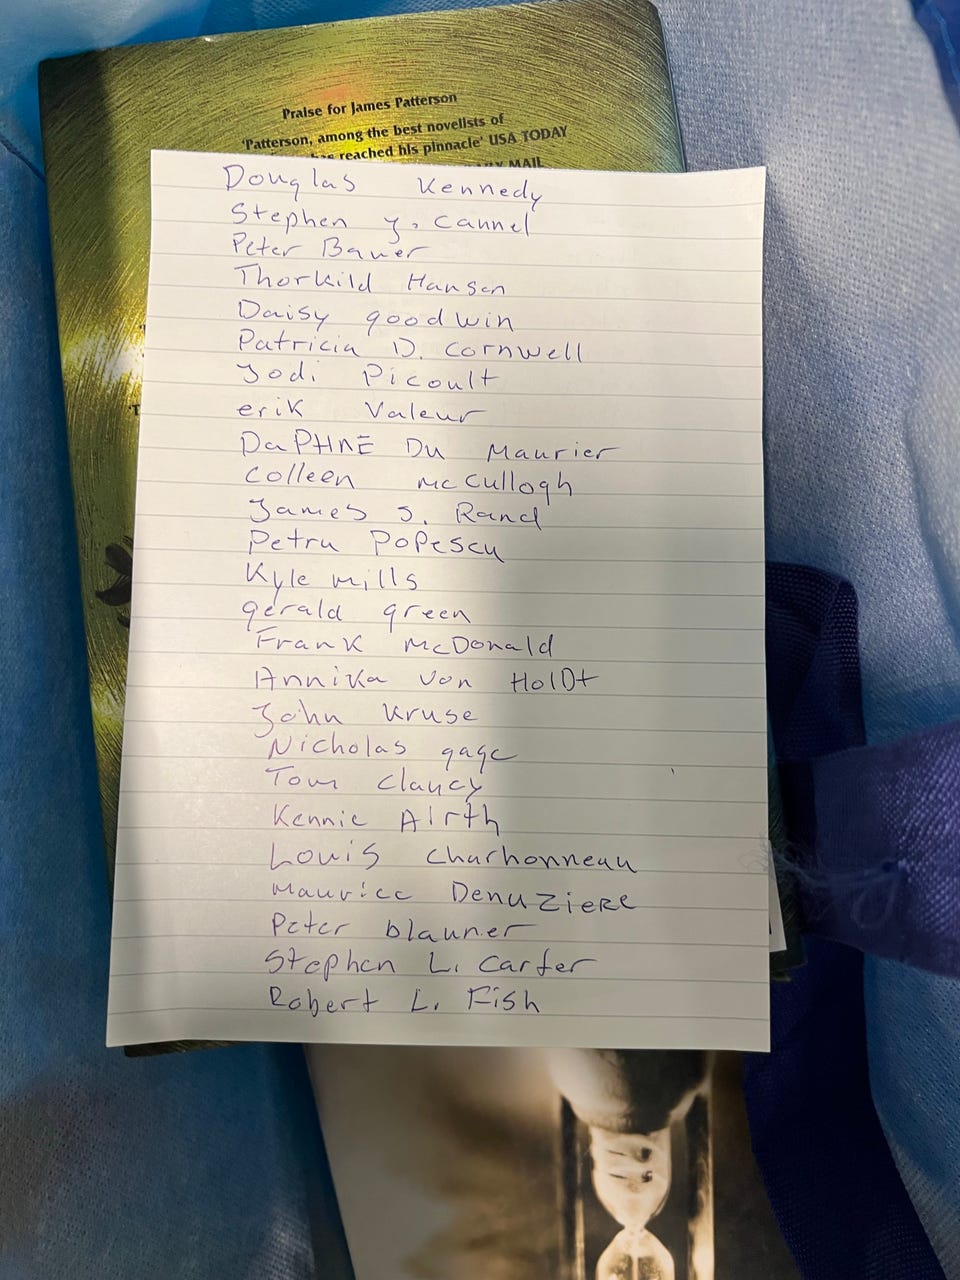 Praise for James Patterson
'Patterson, among the best novelists of
has reached his pinnacle' USA TODAY
MAIL
Douglas Kennedy
Stephen J. Cannel
Peter Bauer
Thorkild Hansen
Daisy goodwin
Patricia D. Cornwell
Jodi Picoult
erik Valeur
DaPHNE Du Maurier
Colleen mcCullogh
James S. Rand
Petru Popescu
Kyle mills
gerald green
Frank mcDonald
Annika von HolDt
John Kruse
Nicholas gage
Tom Clancy
Rennie Airth
Louis Charbonneau
Maurice DenuZieRE
Peter blauner
Stephen L. Carter
Robert L. Fish